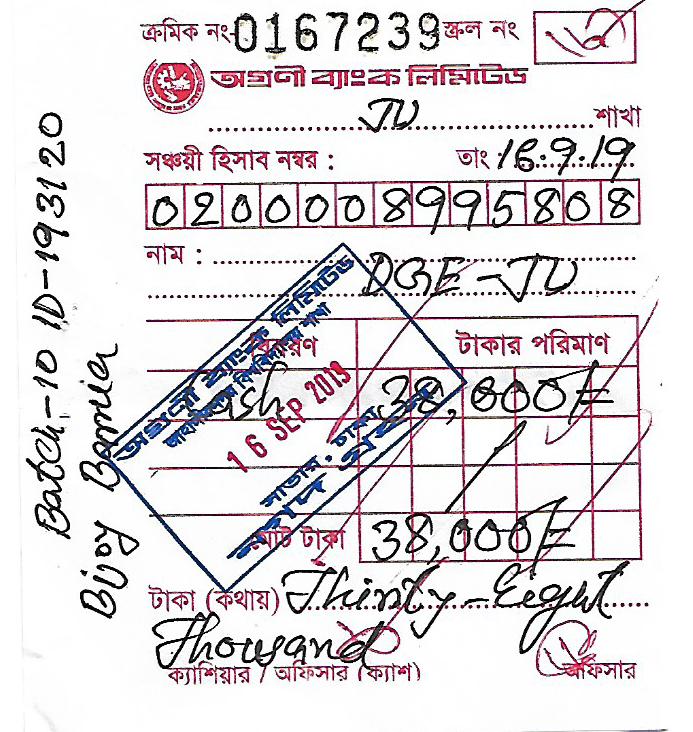 ক্রমিক নং-0167239 স্ক্রল নং
অগ্রণী ব্যাংক লিমিটেড
JU শাখা
সঞ্চয়ী হিসাব নম্বর : তাং 16.9.19
0200008995808
নাম :
DGE-JU
বিবরণ টাকার পরিমাণ
Cash 38,000/=
মোট টাকা 38,000/=
টাকা (কথায়) Thirty-Eight
Thousand
ক্যাশিয়ার / অফিসার (ক্যাশ) অফিসার
অগ্রণী ব্যাংক লিমিটেড
জাহাঙ্গীরনগর বিশ্ববিদ্যালয় শাখা
16 SEP 2019
সাভার, ঢাকা
নগদ গ্রহণ
Batch-10 ID-193120
Bijoy Bormia